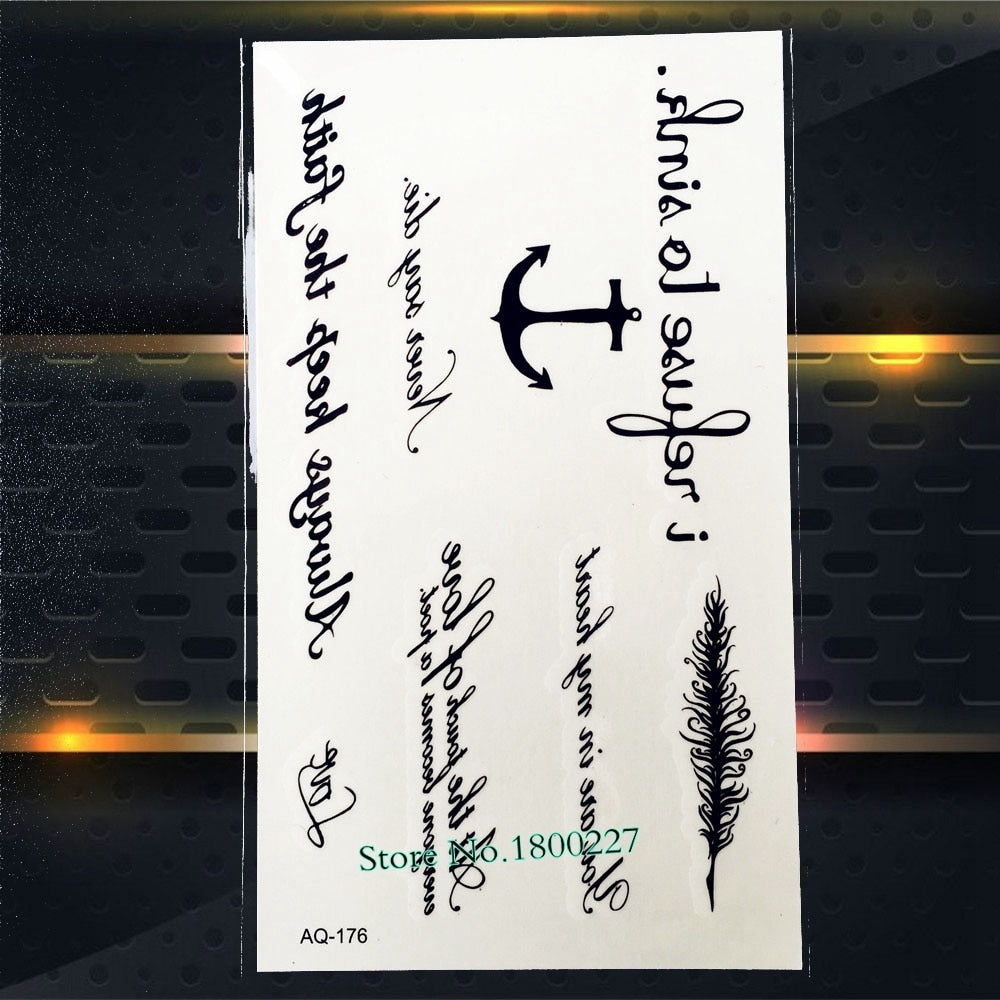 i refuse to sink.
Always keep the Faith
Never say die.
At the touch of love
everyone becomes a poet.
You are in my heart
Love
Store No.1800227
AQ-176